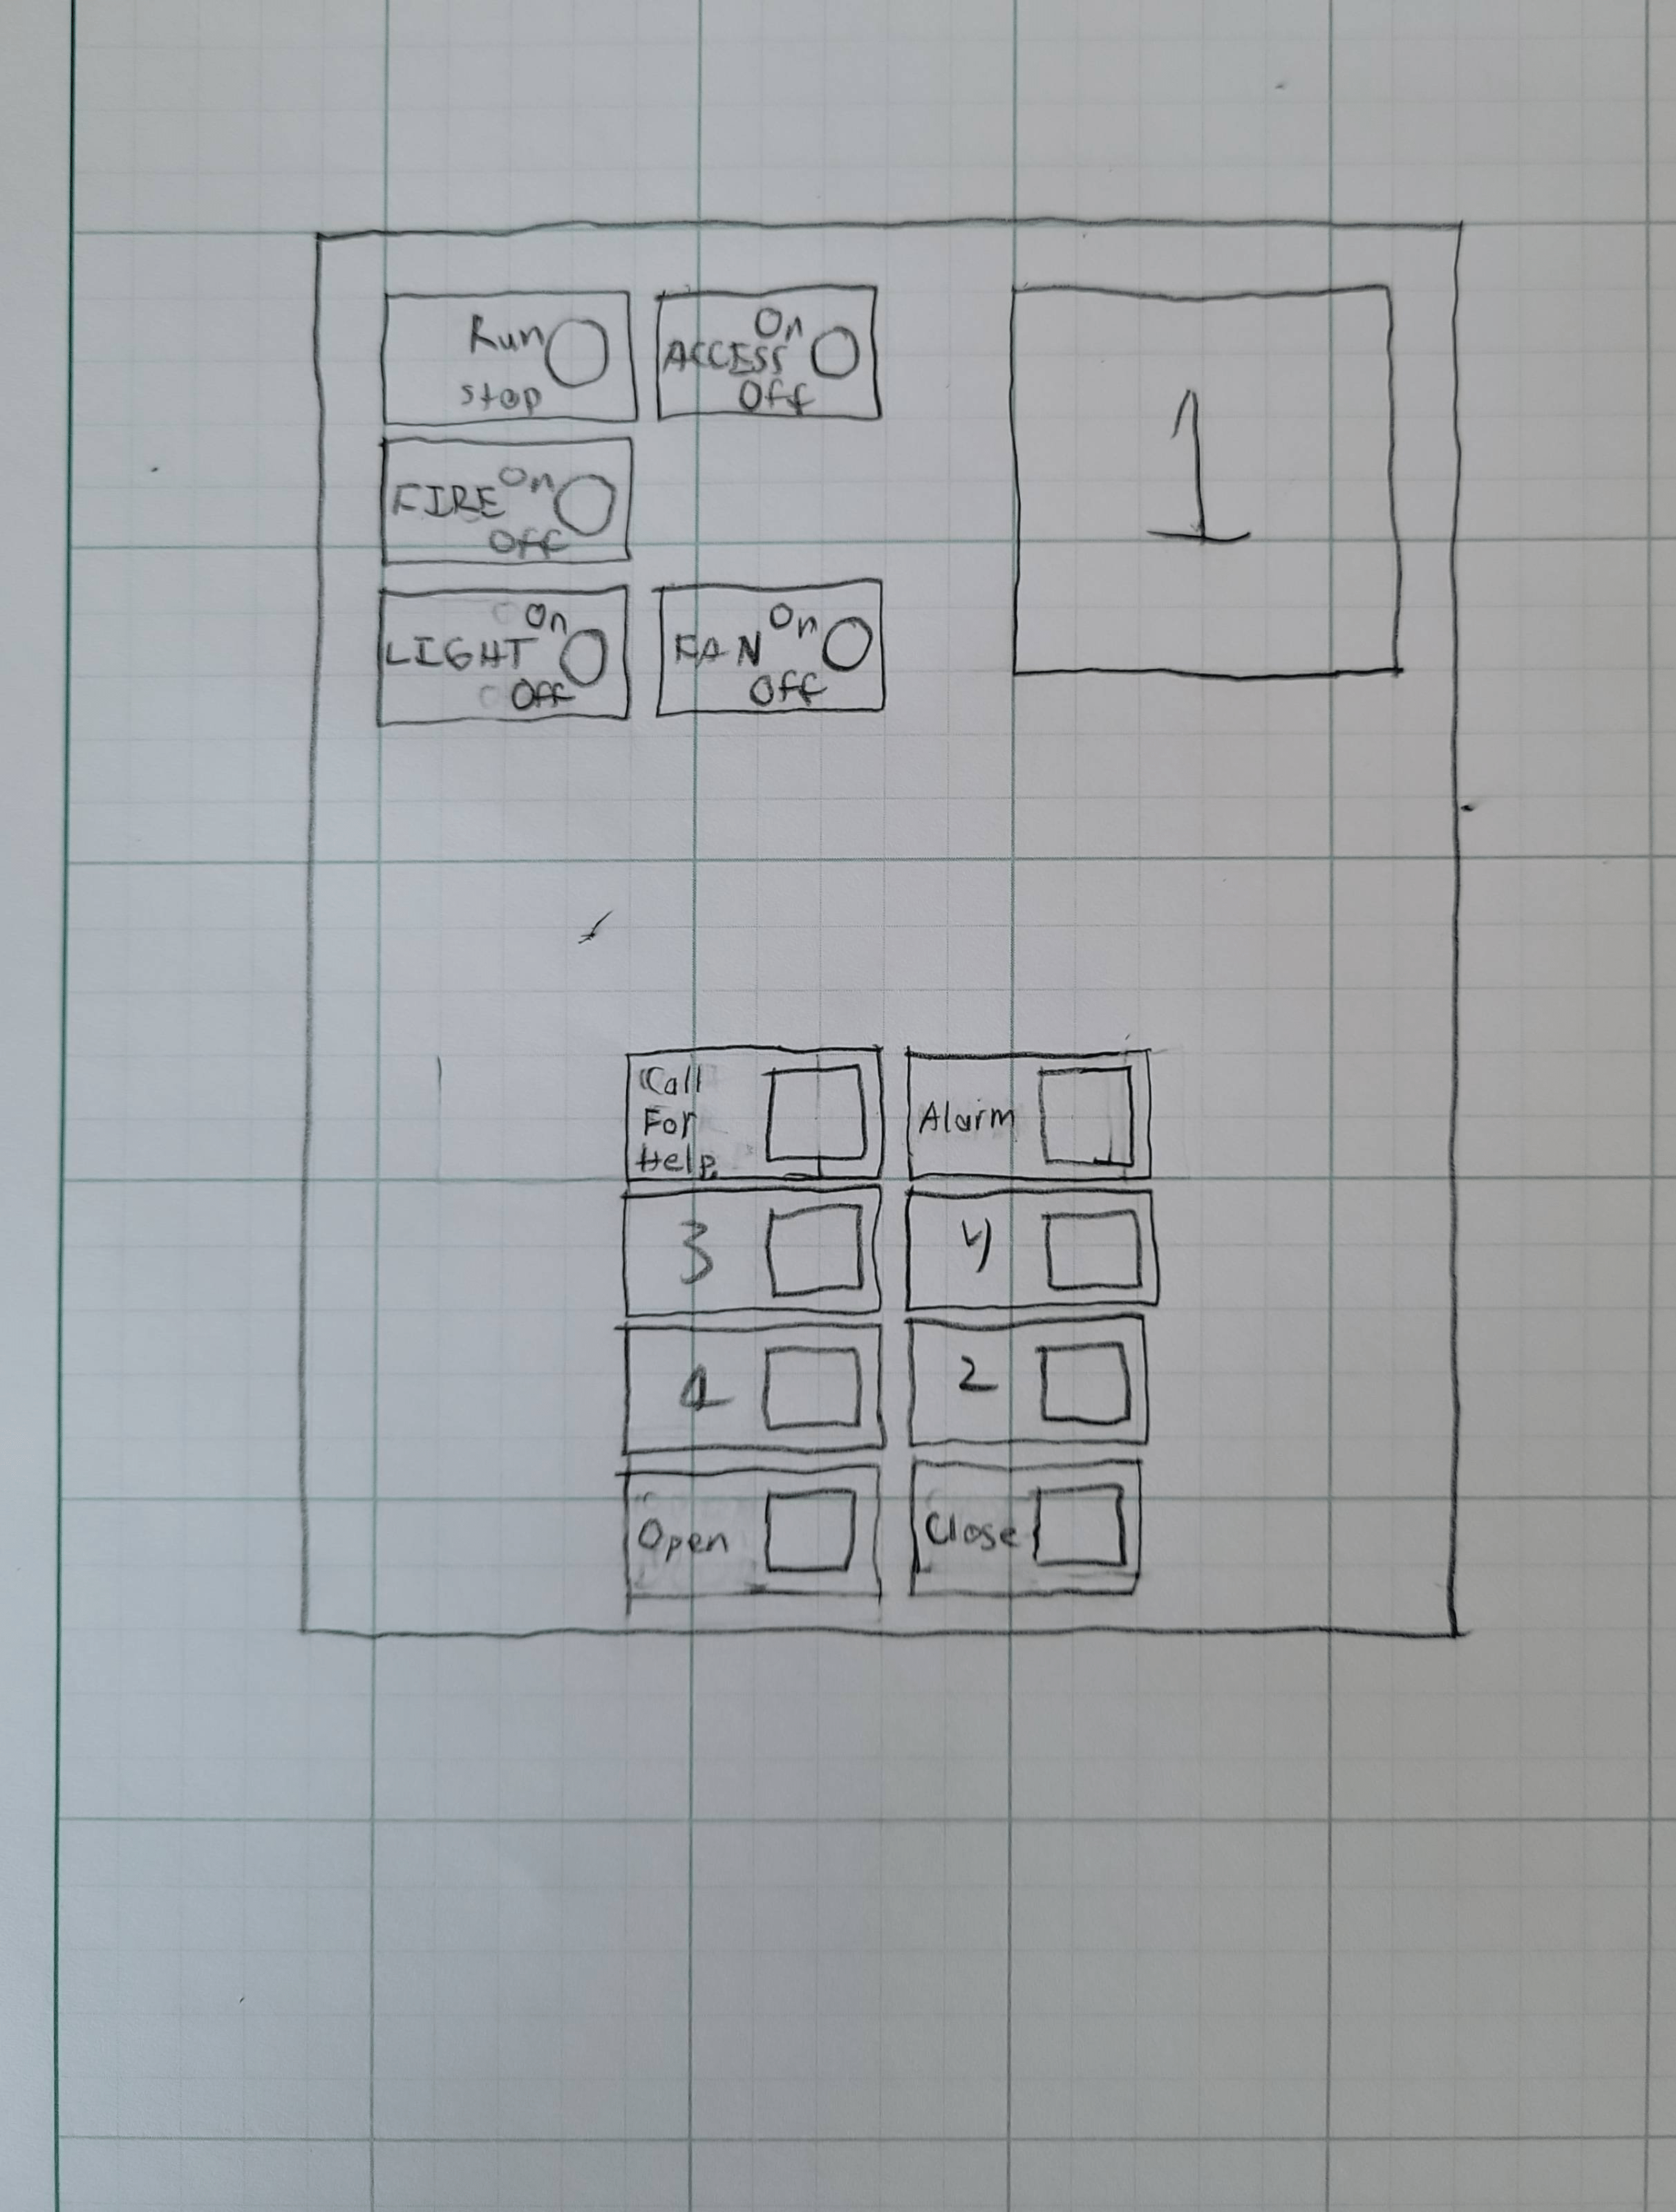 Run
Stop
On
ACCESS
Off
1
FIRE On
Off
On
LIGHT
Off
On
FAN
Off
Call
For
Help
Alarm
3
4
1
2
Open
Close